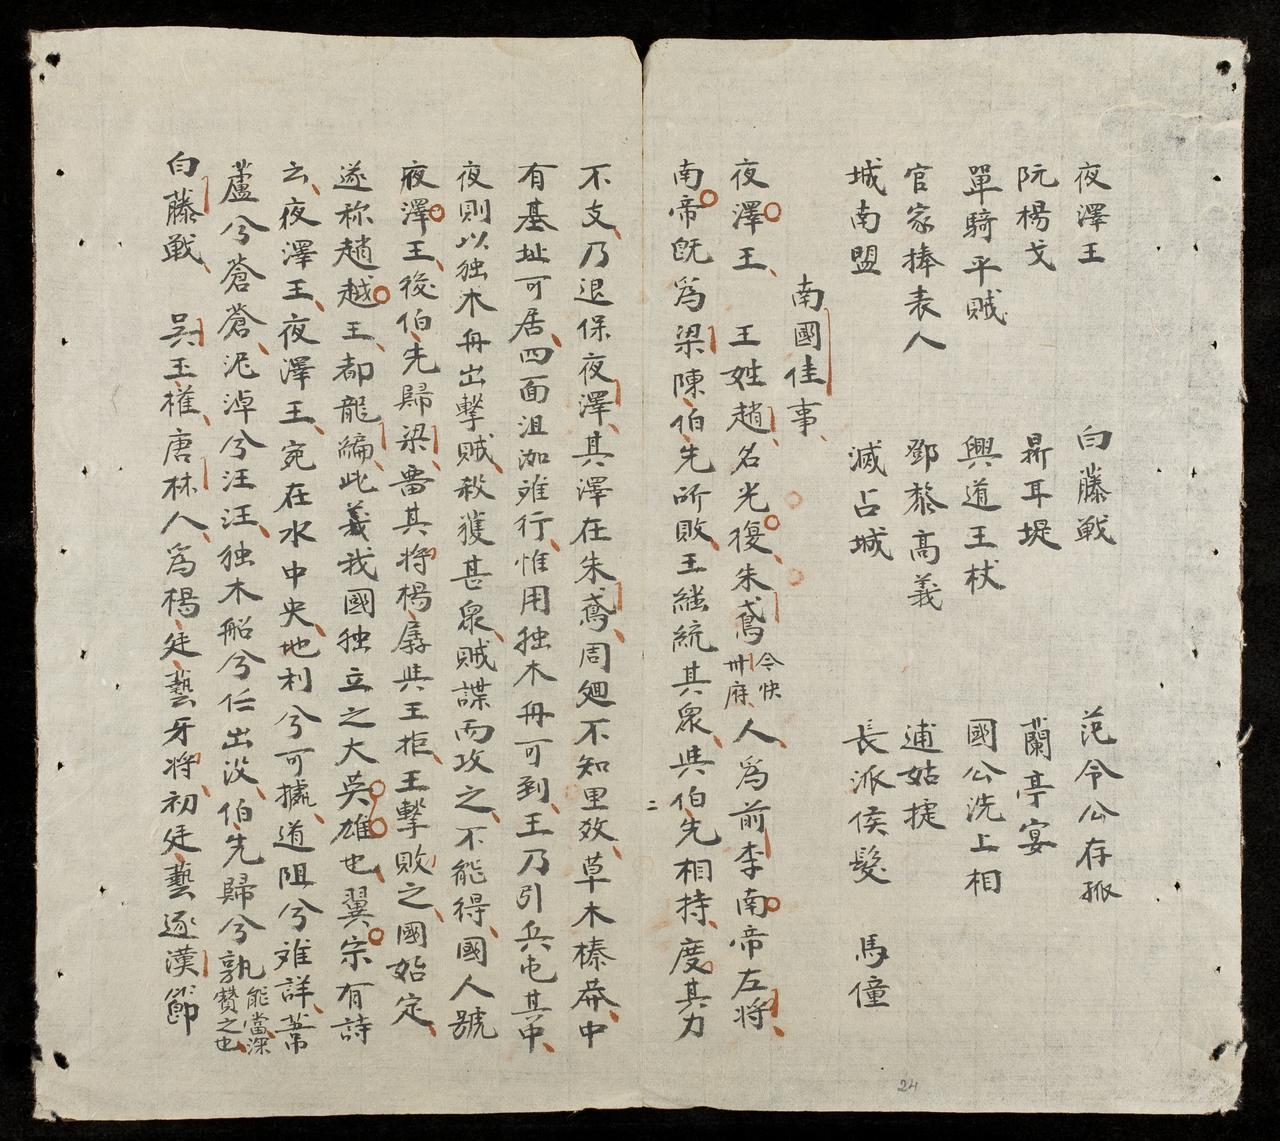 夜澤王 白藤戦 范令公存孤
阮楊戈 昇耳堤 蘭亭宴
單騎平賊 興道王杖 國公洗上相
官家捧表人 鄧黎高義 逋姑捷
城南盟 滅占城 長派侯髮 馬僮
南國佳事
夜澤王 王姓趙名光復朱鳶今快州府人為前李南帝左將
南帝既為梁陳伯先所敗王継統其衆與伯先相持度其力
二
不支乃退保夜澤其澤在朱鳶周廻不知里效草木榛莽中
有基址可居四面沮洳难行惟用独木舟可到王乃引兵屯其中
夜則以独木舟出擊賊殺獲甚衆賊諜而攻之不能得國人號
夜澤王後伯先歸梁畱其將楊孱與王拒王擊敗之國始定
遂称趙越王都龍編此義我國独立之大英雄也翼宗有詩
云夜澤王夜澤王宛在水中央地利兮可據道阻兮难詳葦
蘆兮蒼蒼泥淖兮汪汪独木船兮任出没伯先歸兮孰能當深贊之也
白藤戦 吳王權唐林人為楊廷藝牙將初廷藝逐漢節
24